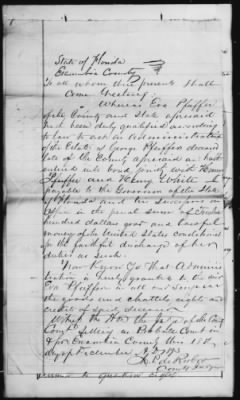 State of Florida
Escambia County
To all whom these presents shall
Come Greeting:
Whereas Eva Pfeiffer
of the County and State aforesaid
hath been duly qualified according
to law to act as Administratrix
of the Estate of George Pfeiffer deceased
late of the County aforesaid and hath
entered into bond jointly with
Pfeiffer and Henry
payable to the Governor of the State
of Florida and his Successors in
Office in the penal sum of
hundred dollars good and lawful
money of the United States conditioned
for the faithful discharge of her
duties as such.
Now Know Ye that Adminis
tration is hereby granted to the said
Eva Pfeiffer on all and singular
the goods and chattels rights and
credits of said deceased
Witness the Hon the Judge of the County
Court sitting as Probate Court in
& for Escambia County this 15th
day of December
County Judge